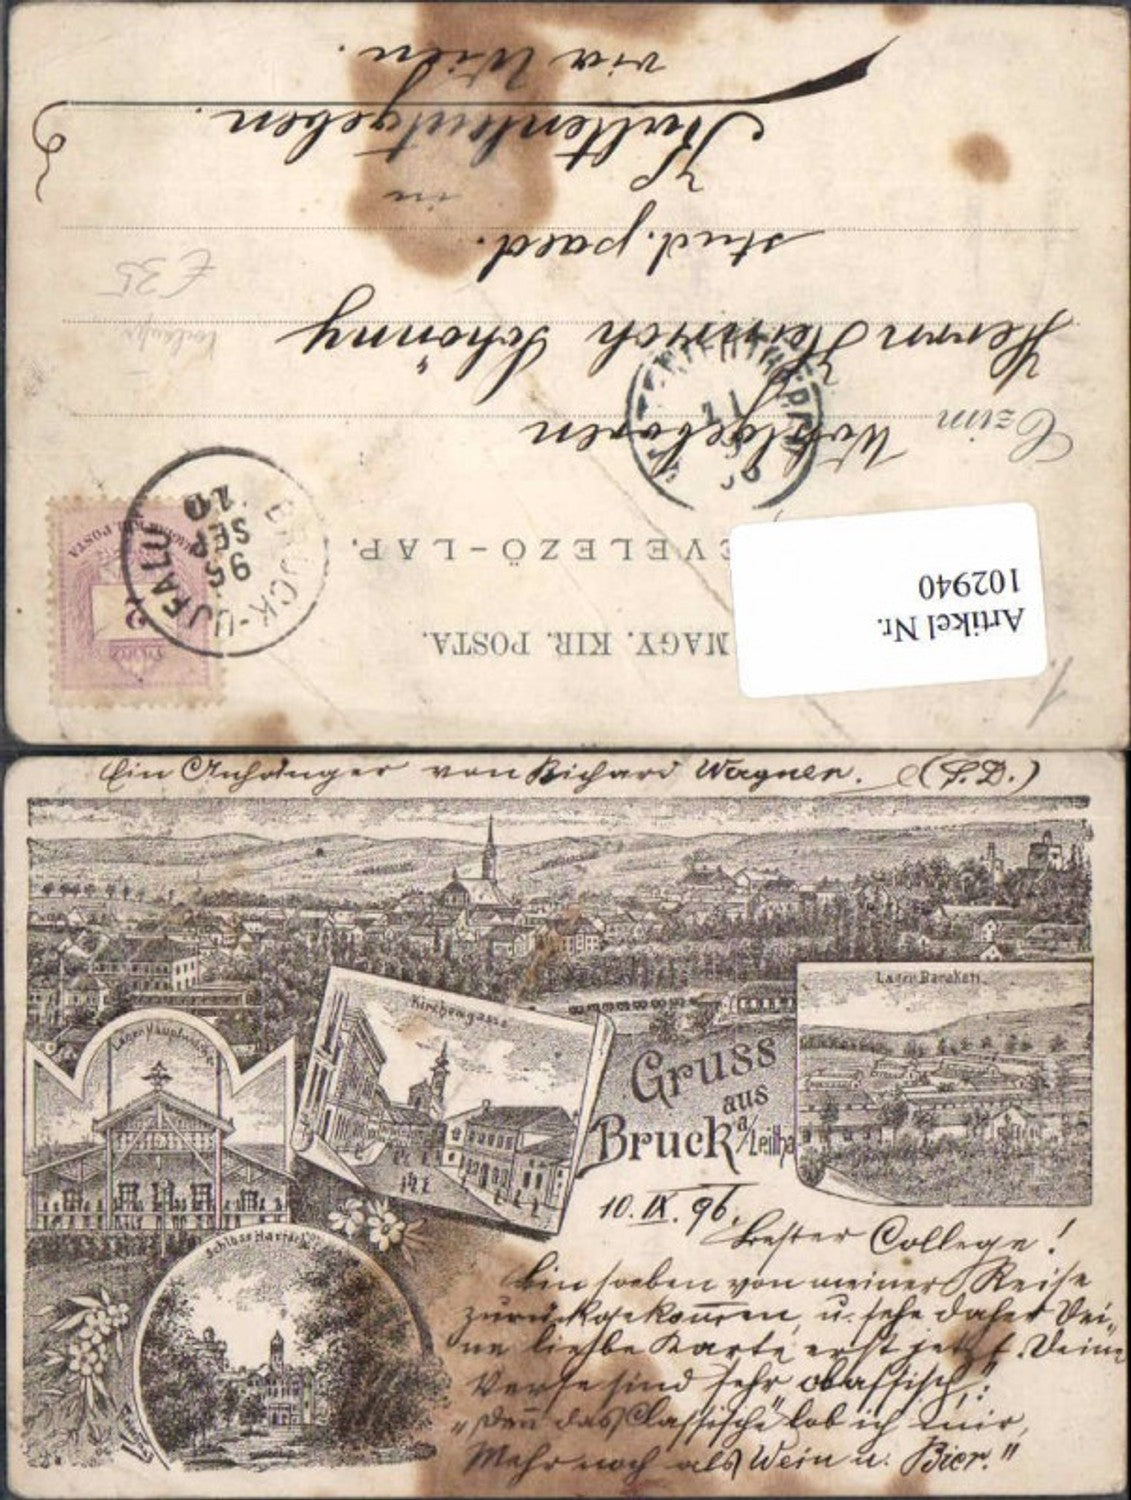 MAGY. KIR. POSTA.
EVELEZŐ-LAP.
Artikel Nr.
102940
MAGYAR KIR. POSTA
2
BRUCK-UJFALU
95
SEP
10
Czim
Wohlgeboren
Herrn Heinrich Schönny
stud. paed.
in
Kaltenleutgeben.
via Wien.
£ 35
Ein Anhänger von Richard Wagner. (L.D.)
Lager Baraken
Kirchengasse
Lager Hauptwache
Gruss
aus
Bruck a/Leitha
Schloss Harrach
10. IX. 96.
Bester College!
Bin soeben von meiner Reise
zurückgekommen, u. sehe daher Dei-
ne liebe Karte erst jetzt. Deine
Verse sind sehr classisch:
"Denn das Classische lob ich mir,
Mehr noch als Wein u. Bier."